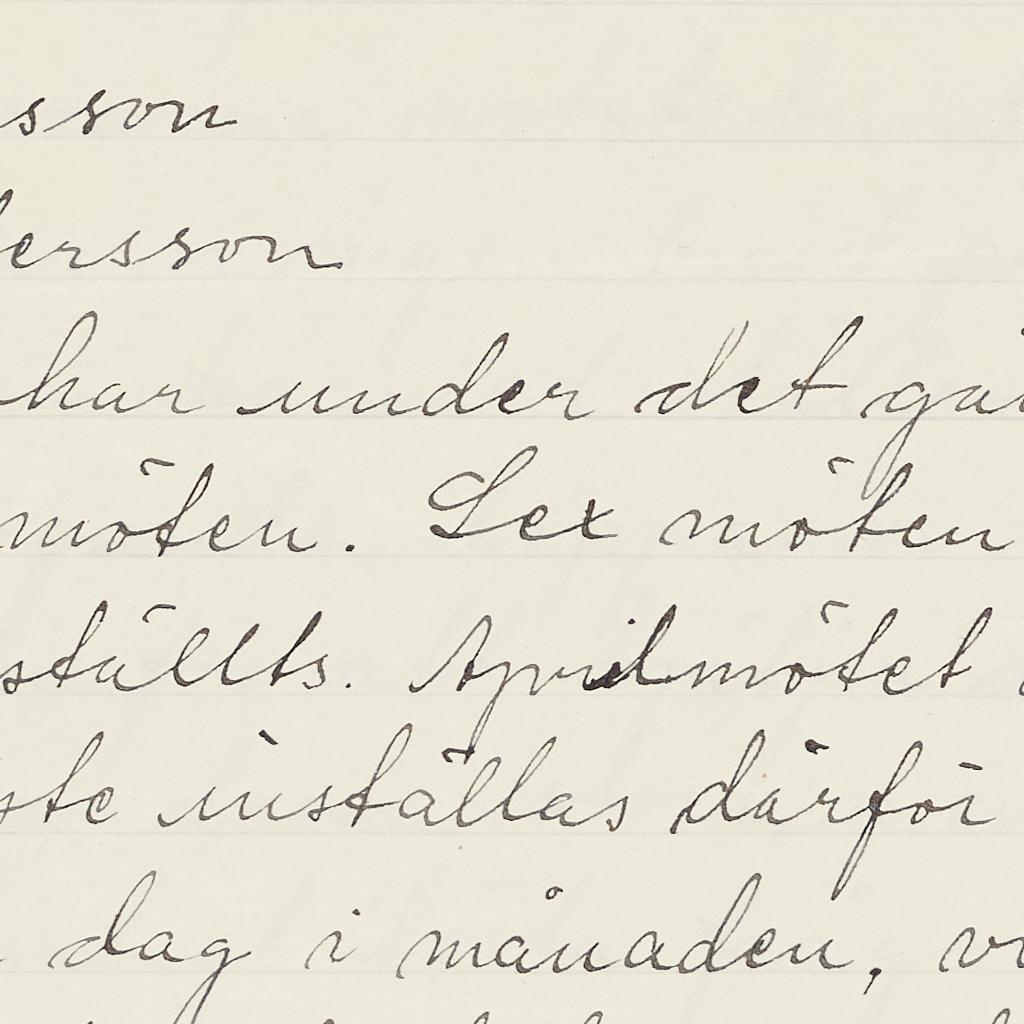 sson
dersson
har under det gå
möten. Sex möten
ställts. Aprilmötet
ste inställas därför
dag i månaden, v